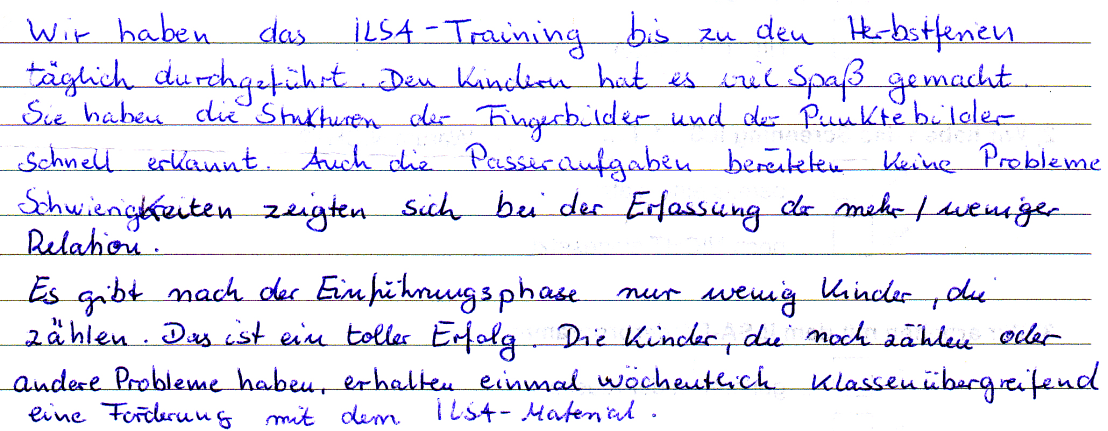 Wir haben das ILSA-Training bis zu den Herbstferien
täglich durchgeführt. Den Kindern hat es viel Spaß gemacht.
Sie haben die Strukturen der Fingerbilder und der Punktebilder
schnell erkannt. Auch die Passeraufgaben bereiteten keine Probleme
Schwierigkeiten zeigten sich bei der Erfassung der mehr / weniger
Relation.
Es gibt nach der Einführungsphase nur wenig Kinder, die
zählen. Das ist ein toller Erfolg. Die Kinder, die noch zählen oder
andere Probleme haben, erhalten einmal wöchentlich klassenübergreifend
eine Förderung mit dem ILSA-Material.